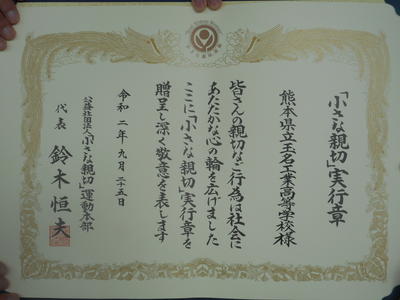 「小さな親切」実行章
熊本県立玉名工業高等学校様
皆さんの親切なご行為は社会に
あたたかな心の輪を広げました
ここに「小さな親切」実行章を
贈呈し深く敬意を表します
令和二年九月二十五日
公益社団法人「小さな親切」運動本部
代表 鈴木恒夫